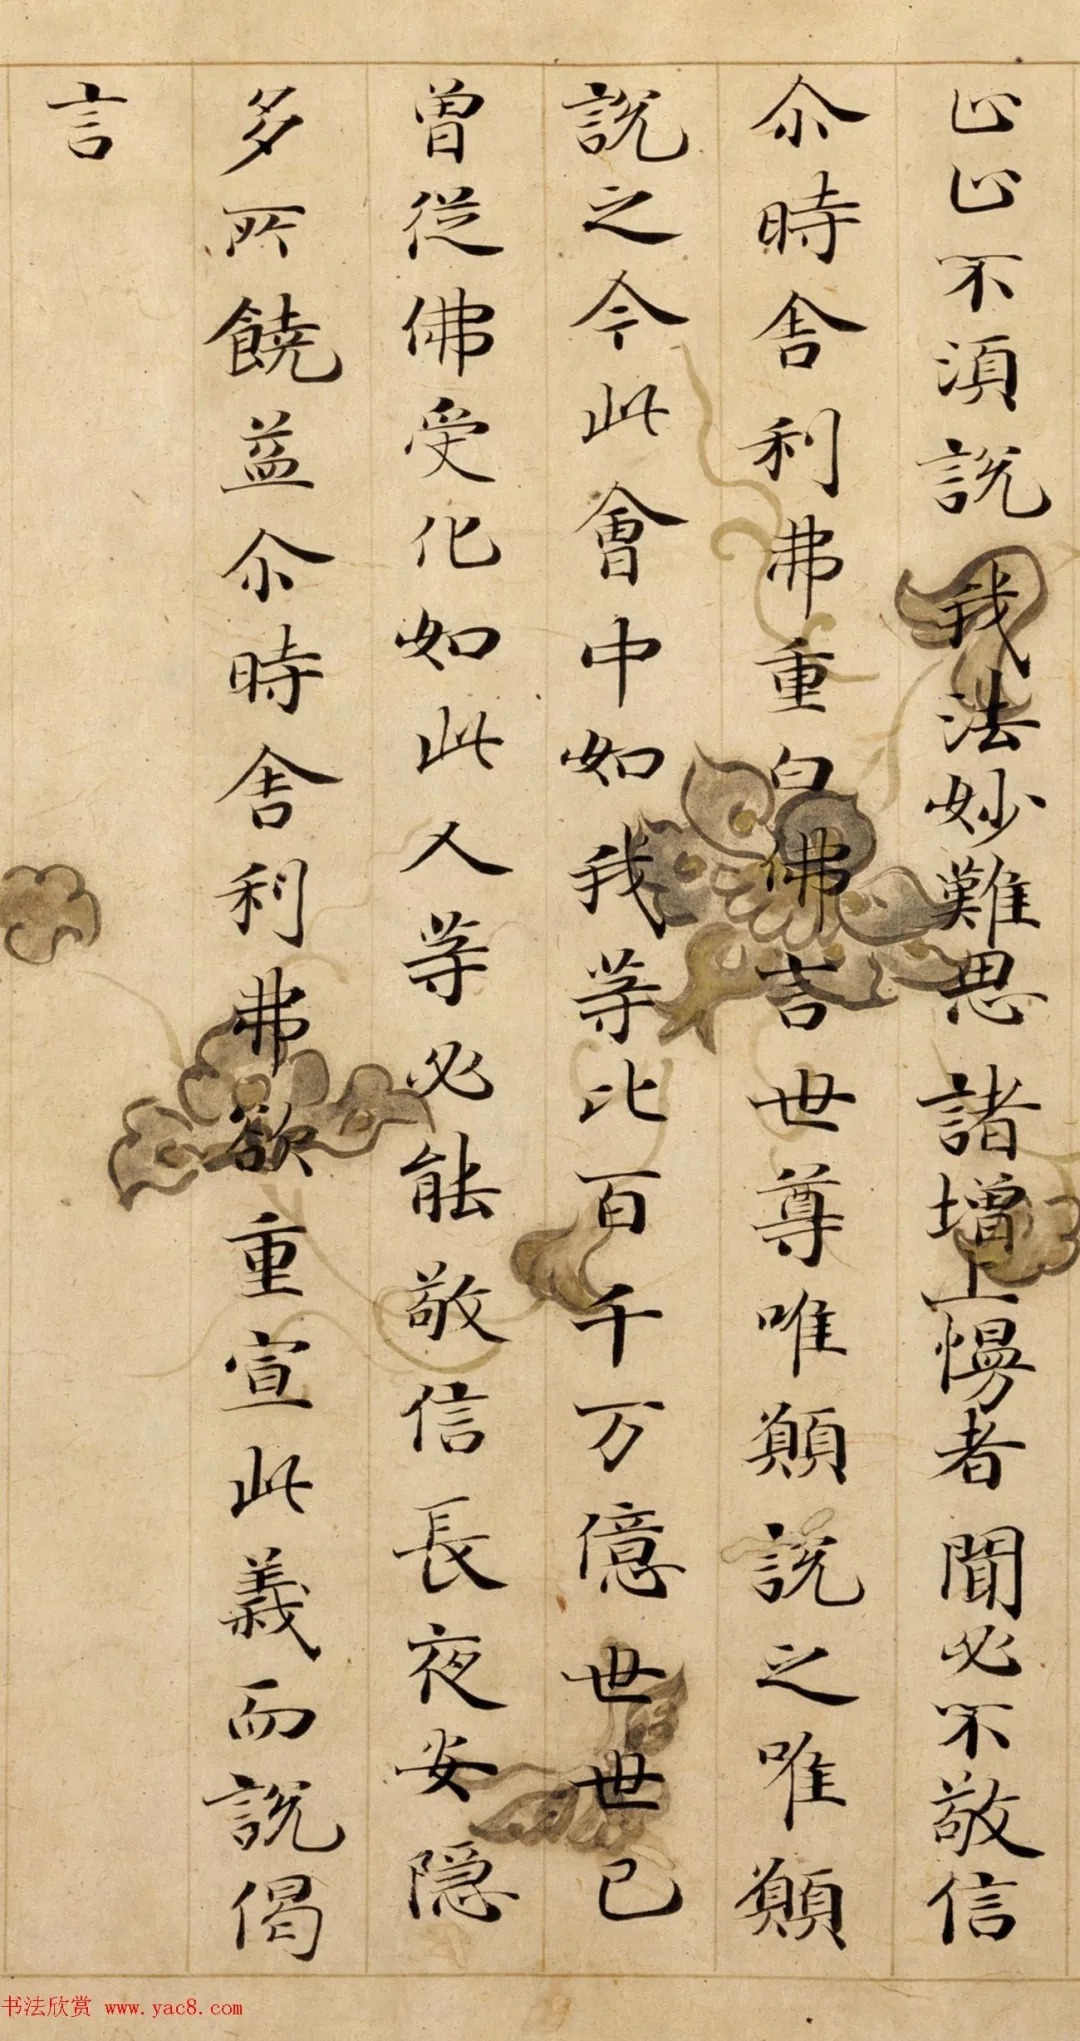 止止不須說 我法妙難思 諸增上慢者 聞必不敬信
尒時舍利弗重白佛言世尊唯願說之唯願
說之今此會中如我等比百千万億世世已
曾從佛受化如此人等必能敬信長夜安隱
多所饒益尒時舍利弗欲重宣此義而說偈
言
书法欣赏 www.yac8.com